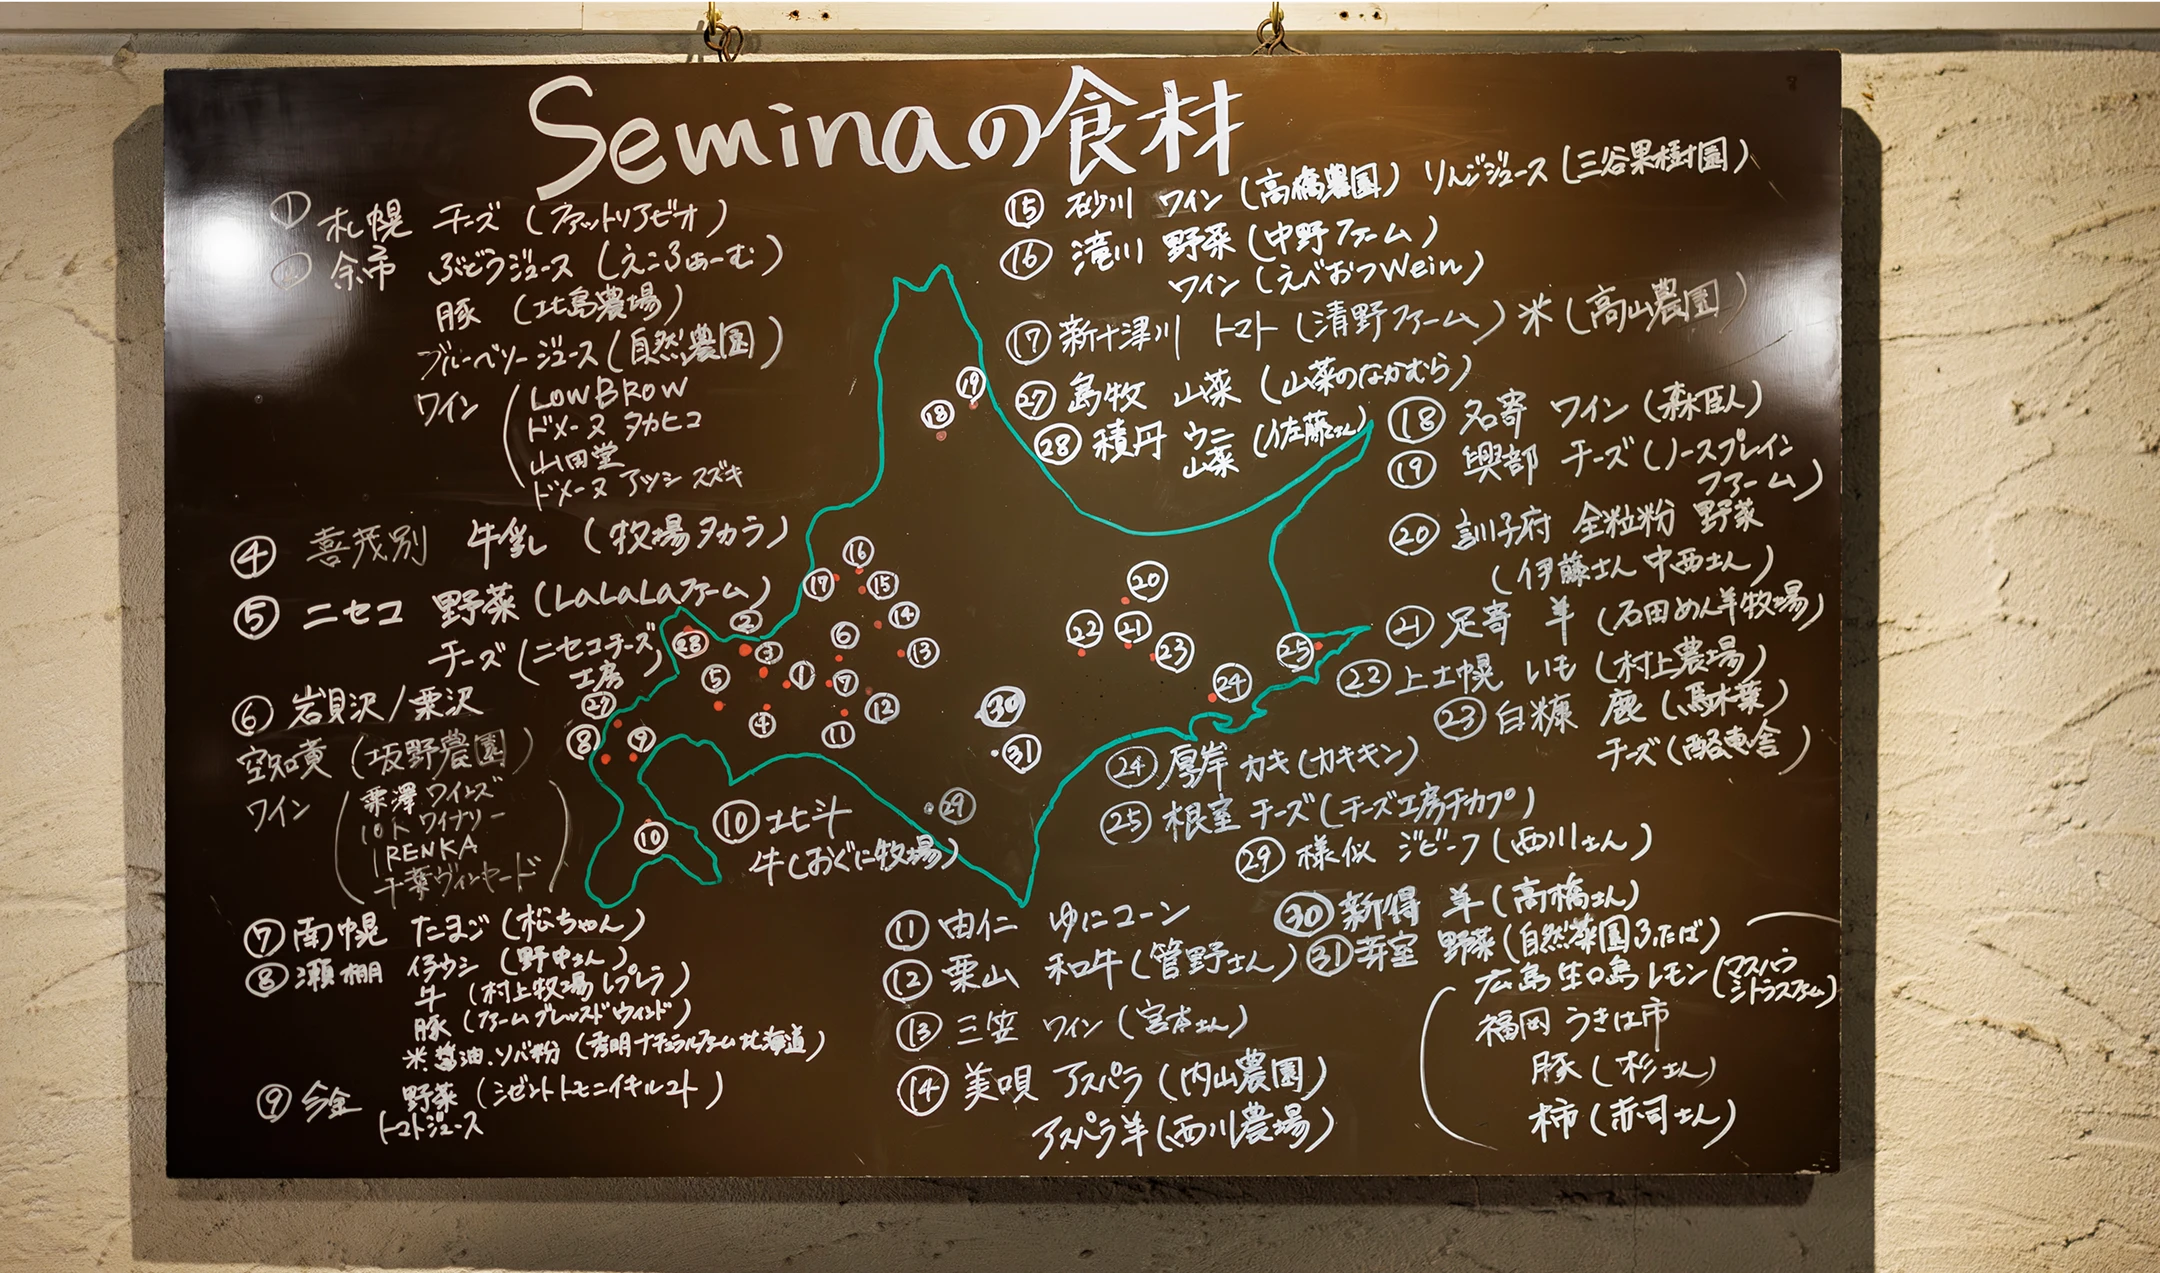 Seminaの食材
① 札幌 チーズ (ファットリアビオ)
② 余市 ぶどうジュース (えこふぁーむ)
豚 (北島農場)
ブルーベリージュース (自然農園)
ワイン (LOWBROW
ドメーヌ タカヒコ
山田堂
ドメーヌ アツシ スズキ
④ 喜茂別 牛乳 (牧場タカラ)
⑤ ニセコ 野菜 (LaLaLaファーム)
チーズ (ニセコチーズ
工房)
⑥ 岩見沢/栗沢
空知黄 (坂野農園)
ワイン (栗澤ワインズ
10Rワイナリー
RENKA
千葉ヴィンヤード)
⑦ 南幌 たまご (松ちゃん)
⑧ 瀬棚 イチウシ (野中さん)
牛 (村上牧場 レプレラ)
豚 (ファームブレッスドウィンド)
米.醤油.ソバ粉 (秀明ナチュラルファーム北海道)
⑨ 今金 野菜 (シゼントトモニイキルコト)
トマトジュース
⑩ 北斗
牛(おぐに牧場)
⑪ 由仁 ゆにコーン
⑫ 栗山 和牛 (菅野さん)
⑬ 三笠 ワイン (宮本さん)
⑭ 美唄 アスパラ (内山農園)
アスパラ羊 (西川農場)
⑮ 砂川 ワイン (高橋農園) りんごジュース (三谷果樹園)
⑯ 滝川 野菜 (中野ファーム)
ワイン (えべおつWein)
⑰ 新十津川 トマト (清野ファーム) 米 (高山農園)
㉗ 島牧 山菜 (山菜のなかむら)
㉘ 積丹 ウニ
山菜 (佐藤さん)
⑱ 名寄 ワイン (森臥)
⑲ 興部 チーズ (ノースプレイン
ファーム)
⑳ 訓子府 全粒粉 野菜
(伊藤さん 中西さん)
㉑ 足寄 羊 (石田めん羊牧場)
㉒ 上士幌 いも (村上農場)
㉓ 白糠 鹿 (馬木葉)
チーズ (酪恵舎)
㉔ 厚岸 カキ (カキキン)
㉕ 根室 チーズ (チーズ工房チカプ)
㉙ 様似 ジビーフ (西川さん)
㉚ 新得 羊 (高橋さん)
㉛ 芽室 野菜 (自然菜園ふたば)
広島 生口島 レモン (マスハウ
シトラスファーム)
福岡 うきは市
豚 (杉さん)
柿 (赤司さん)
⑲
⑱
⑯
⑰
⑮
⑭
⑥
⑬
②
㉘
③
①
⑤
⑦
⑫
④
⑪
㉗
⑧
⑨
⑩
⑳
㉒
㉑
㉓
㉕
㉔
㉚
㉛
㉙